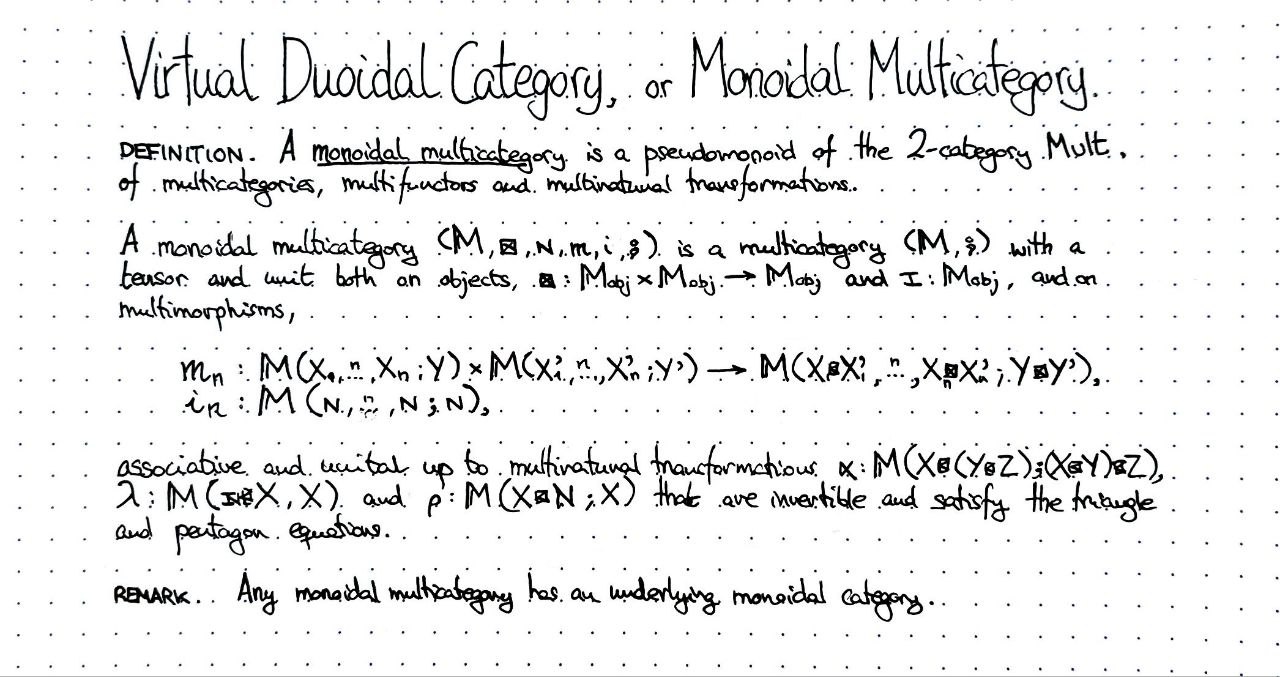 Virtual Duoidal Category, or Monoidal Multicategory.
DEFINITION. A monoidal multicategory is a pseudomonoid of the 2-category Mult.
of multicategories, multifunctors and multinatural transformations.
A monoidal multicategory (𝕄, ⊠, N, m, i, ⨾) is a multicategory (𝕄, ⨾) with a
tensor and unit both on objects, ⊠ : 𝕄obj × 𝕄obj → 𝕄obj and I : 𝕄obj, and on
multimorphisms,
mₙ : 𝕄(X₀, ⁿ…, Xₙ ; Y) × 𝕄(X'₁, ⁿ…, X'ₙ ; Y') → 𝕄(X⊠X'₁, ⁿ…, Xₙ⊠X'ₙ ; Y⊠Y'),
iₙ : 𝕄(N, ⁿ…, N ; N),
associative and unital up to multinatural transformations α : 𝕄(X⊠(Y⊠Z) ; (X⊠Y)⊠Z),
λ : 𝕄(⊠X, X) and ρ : 𝕄(X⊠N ; X) that are invertible and satisfy the triangle
and pentagon equations.
REMARK. Any monoidal multicategory has an underlying monoidal category.